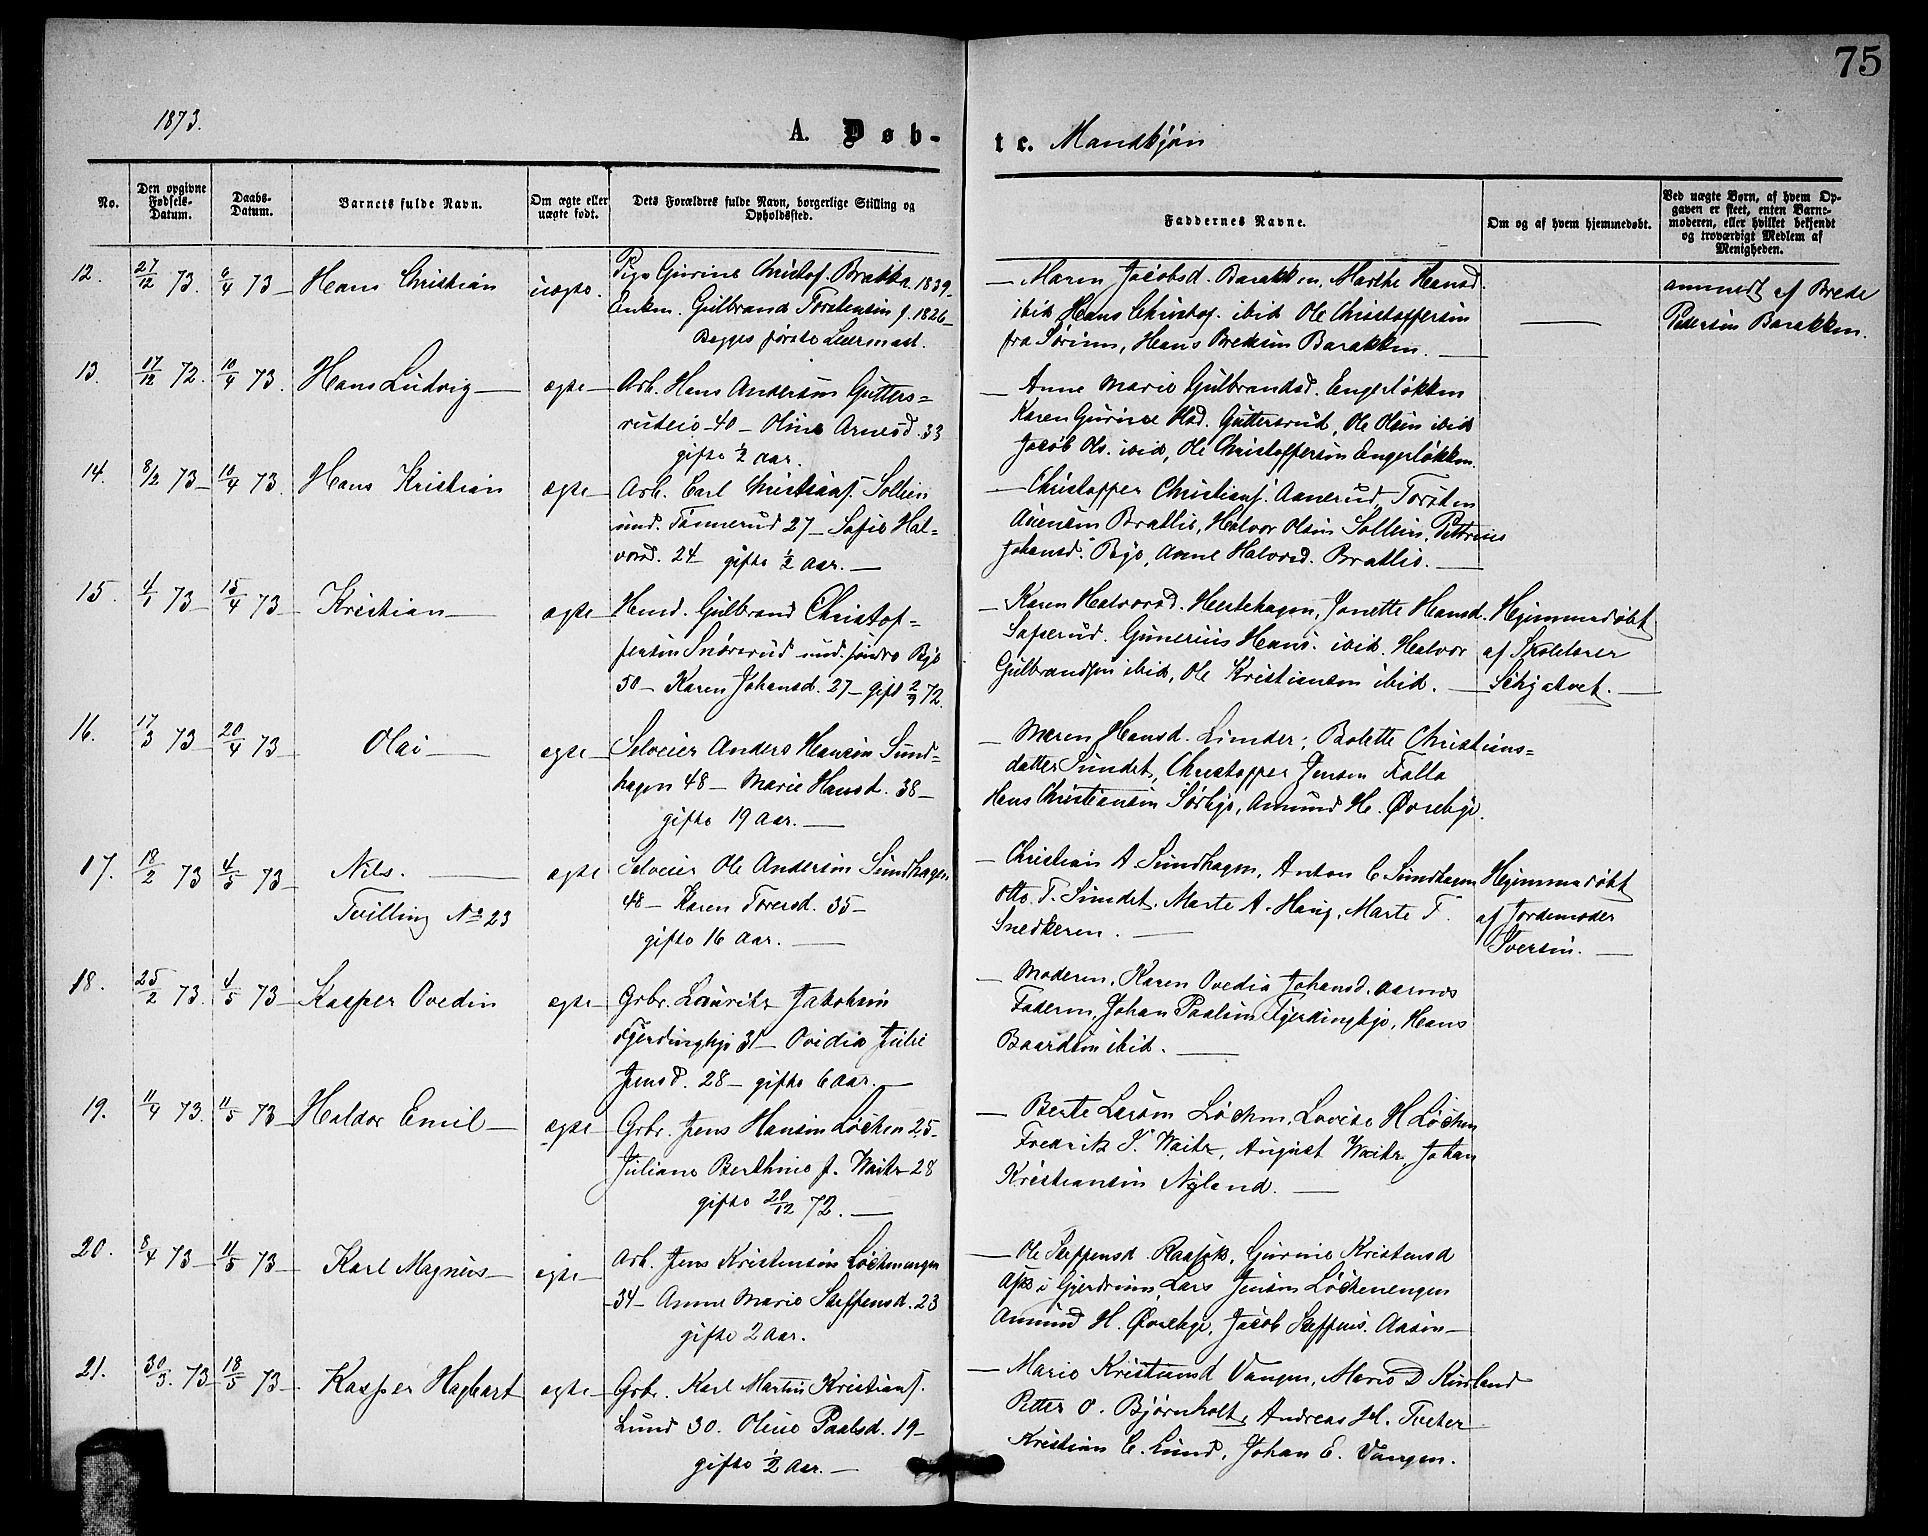 75
1873.
A. Døb-
te. Mandkjøn
No.
Den opgivne Fødsels-Datum.
Daabs-Datum.
Barnets fulde Navn.
Om ægte eller uægte født.
Dets Forældres fulde Navn, borgerlige Stilling og Opholdssted.
Faddernes Navne.
Om og af hvem hjemmedøbt.
Ved uægte Børn, af hvem Opgaven er skeet, enten Barnemoderen, eller hvilket bekjendt og troværdigt Medlem af Menigheden.
12. 27/12 73. 6/4 73 Hans Christian uægte.
Pige Gurine Christof. Brakka 1839
Enkm. Gulbrand Torstensen f. 1826
Begges første Leiermaal.
Maren Jacobsd. Barakken, Marthe Hansd.
ibid Hans Christof. ibid Ole Christoffersen
fra Sørum, Hans Bredesen Barakken.
anmeldt af Brede
Pedersen Barakken.
13. 17/12 72. 10/4 73. Hans Ludvig ægte
Arb. Hans Andersen Gutters=
rudeie 40 Oline Arnesd. 33
gifte 1/2 aar.
Anne Marie Gulbrandsd. Engerløkken
Karen Gurine Olsd. Guttersrud, Ole Olsen ibid
Jacob Ols. ibid, Ole Christoffersen Engerløkken.
14. 8/2 73 10/4 73. Hans Kristian ægte
Arb. Carl Christians. Sollien
und. Tønnerud 27 Sofie Hal=
vorsd. 24 gifte 1/2 aar.
Christoffer Christians. Aanerud, Torsten
Auensen Bratlie, Halvor Olsen Sollien, Petterine
Johansd. Bye, Anne Halvorsd. Bratlie.
15. 4/1 73 15/4 73 Kristian ægte
Husm. Gulbrand Christof=
fersen Snørerud und. søndre Bye
50 Karen Johansd. 27 gift 2/9 72.
Karen Halvorsd. Hestehagen, Jonette Hansd.
Saxerud. Gunerius Hans. ibid. Halvor
Gulbrandsen ibid, Ole Kristiansen ibid.
Hjemmedøbt
af Skolelærer
Schjatvet.
16. 17/3 73 20/4 73 Olai ægte
Selveier Anders Hansen Sund=
hagen 48 Marie Hansd. 38
gifte 19 aar.
Maren Hansd. Linder, Bolette Christians=
datter Sundet, Christoffer Jensen Falla
Hans Christiansen Sørbye, Amund H. Øvrebye.
17. 18/2 73 4/5 73 Nils. ægte
Tvilling No 23
Selveier Ole Andersen Sundhagen
48 Karen Toresd. 35
gifte 16 aar.
Christian A Sundhagen, Anton C Sundhagen
Otto T. Sundet, Marte A. Haug, Marte T.
Snedkeren.
Hjemmedøbt
af Jordemoder
Iversen.
18. 25/2 73. 4/5 73 Kasper Ovedin ægte
Grbr. Lauritz Jakobsen
Fjerdingbye 31 Ovidia Julie
Jensd. 28 gifte 6 aar.
Moderen, Karen Ovedia Johansd. Aarnes
Faderen, Johan Paulsen Fjerdingbye, Hans
Baardsen ibid.
19. 11/4 73. 11/5 73 Haldor Emil ægte
Grbr. Jens Hansen Løchen 25
Juliane Berthine f. Waitz 28
gifte 20/12 72.
Berte Larsen Løchen, Lovise H Løchen
Fredrik J. Waitz, August Waitz, Johan
Kristiansen Nyland.
20. 8/4 73 11/5 73 Karl Magnus ægte
Arb. Jens Kristensen Løchenengen
34 Anne Marie Steffensd. 23
gifte 2 aar.
Ole Steffensd. Raasok, Gurine Kristensd
Ask i Gjerdrum, Lars Jensen Løchenengen
Amund H. Øvrebye, Jacob Steffens. Aasen
21. 30/3. 73 18/5 73 Kasper Hagbart ægte
Grbr. Karl Martin Kristians.
Lund 30. Oline Paalsd. 19
gifte 1/2 aar.
Marie Kristiansd Vangen, Marie D Kurland
Petter O. Bjørnholt, Andreas H. Tveter
Kristian C. Lund, Johan E. Vangen.